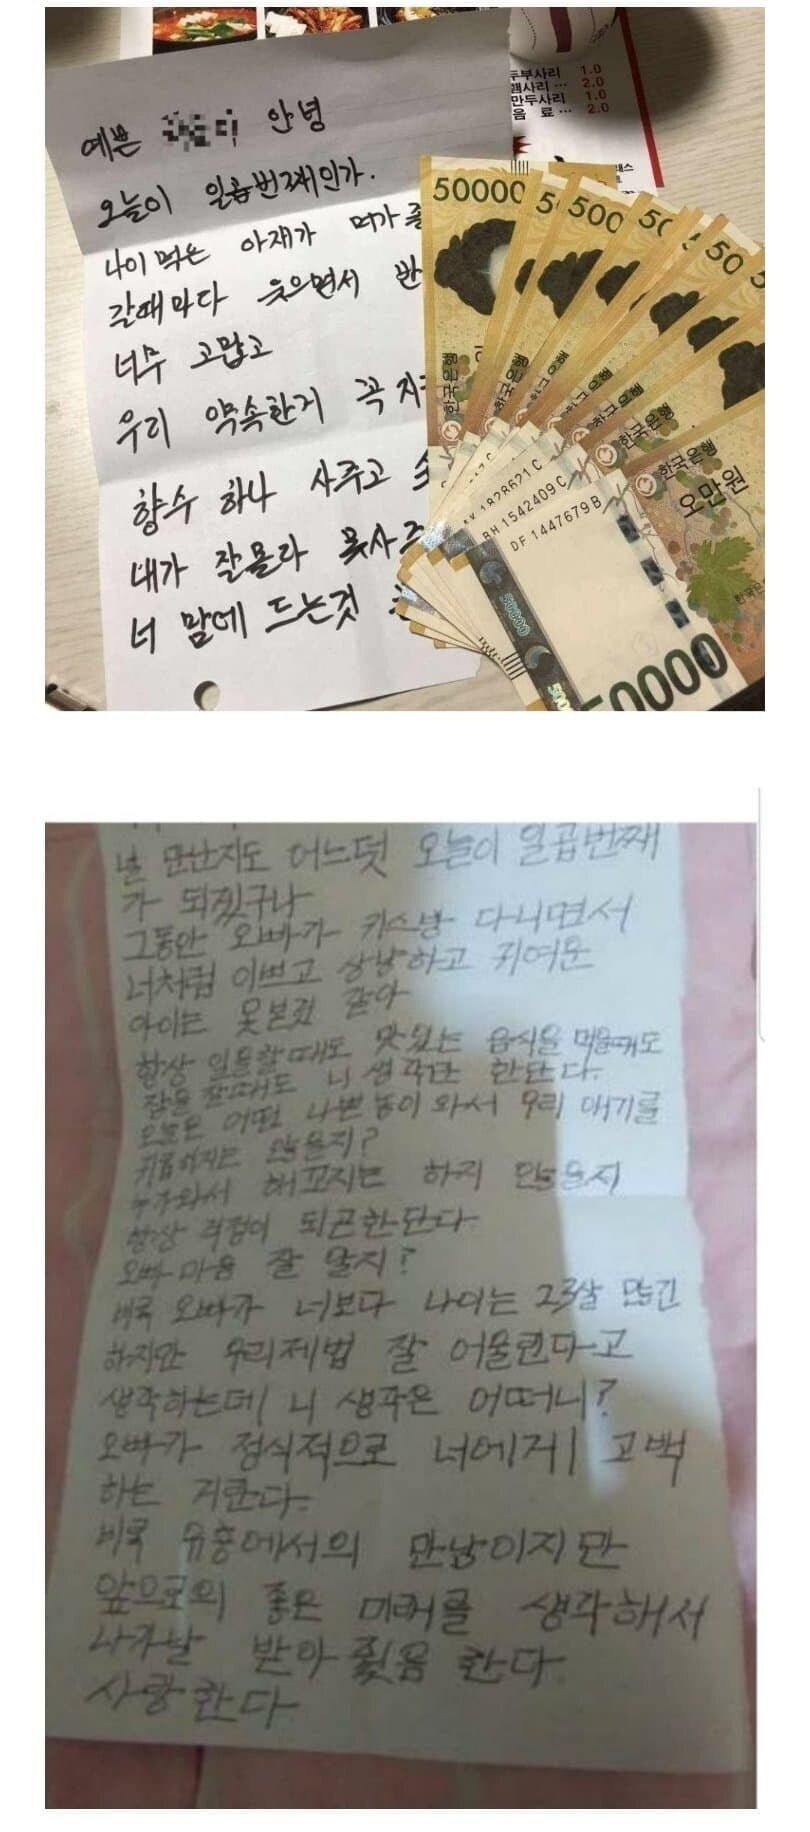 두부사리 1.0
햄사리 ... 2.0
만두사리 1.0
음 료 ... 2.0
예쁜 안녕
오늘이 일곱번째인가.
나이 먹은 아재가 뭐가 좋
갈때마다 웃으면서 반
너무 고맙고
우리 약속한거 꼭 지
향수 하나 사주고
내가 잘몰라 못사주
너 맘에 드는것
50000
50
500
50
50
5
한국은행
한국은행
한국은행
한국은행
한국은행
오만원
1828621 C
BH 1542409 C
DF 1447679 B
50000
50000
널 만난지도 어느덧 오늘이 일곱번째
가 되겠구나
그동안 오빠가 키스방 다니면서
너처럼 이쁘고 상냥하고 귀여운
아이는 못본것 같아
항상 일을할때도 맛있는 음식을 먹을때도
잠을 잘때도 니 생각만 한단다.
오늘은 어떤 나쁜놈이 와서 우리 애기를
괴롭히지는 않을지?
누가와서 해꼬지는 하지 않을지
항상 걱정이 되곤한단다
오빠 마음 잘 알지?
비록 오빠가 너보다 나이는 23살 많긴
하지만 우리제법 잘 어울린다고
생각하는데 니 생각은 어떠니?
오빠가 정식적으로 너에게 고백
하는 거란다.
비록 유흥에서의 만남이지만
앞으로의 좋은 미래를 생각해서
나가날 받아 줬음 한다.
사랑한다